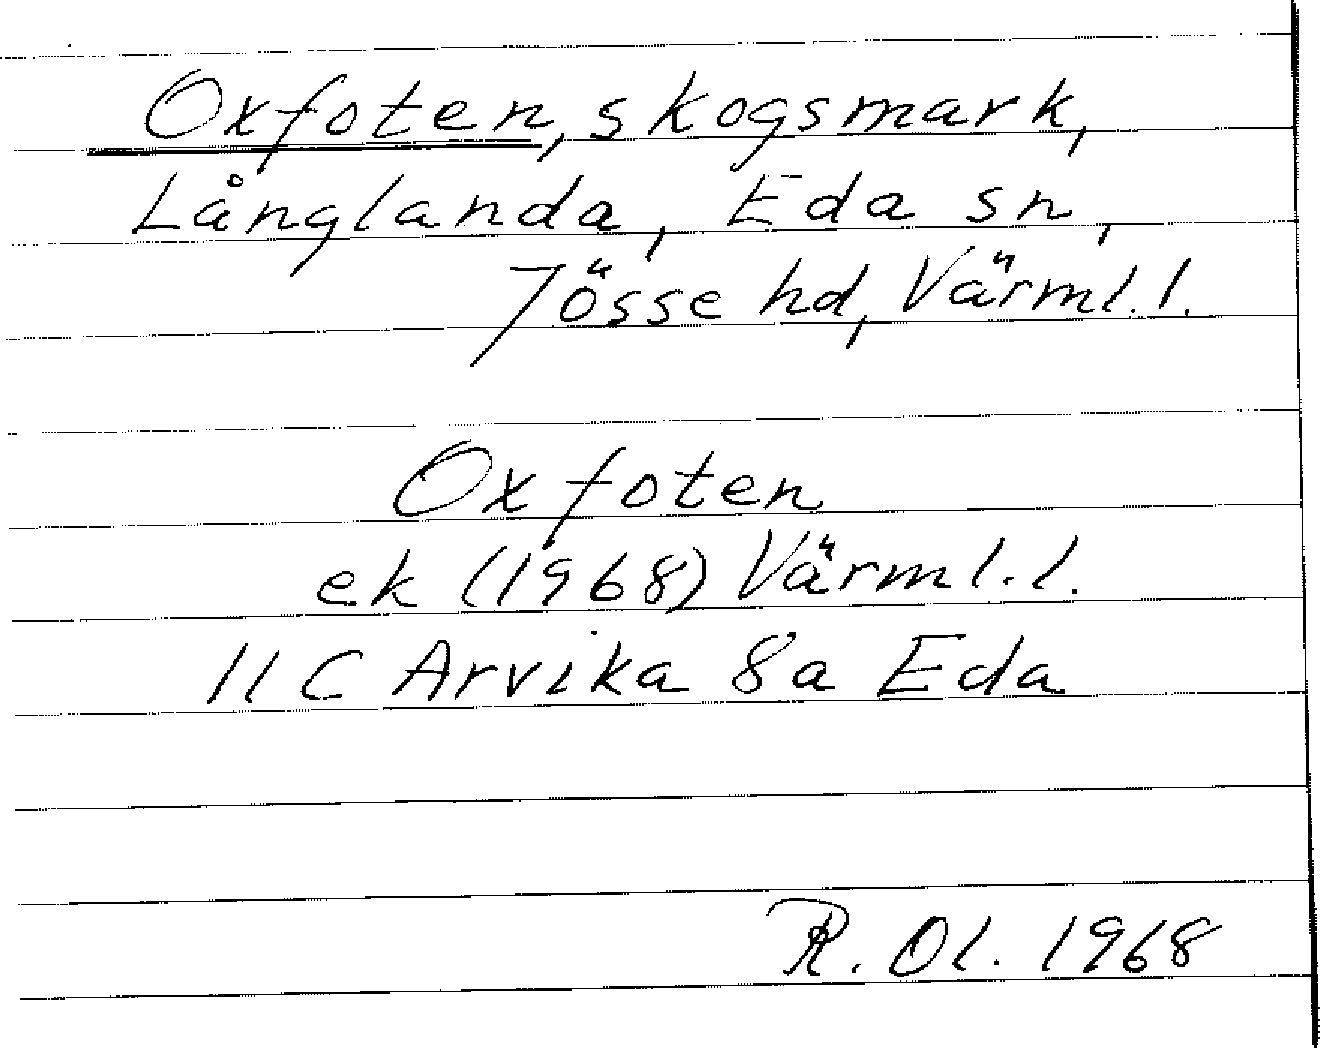 Oxfoten, skogsmark,
Långlanda, Eda sn,
Jösse hd, Värml. l.
Oxfoten
ek (1968) Värml. l.
11 C Arvika 8a Eda
R. Ol. 1968